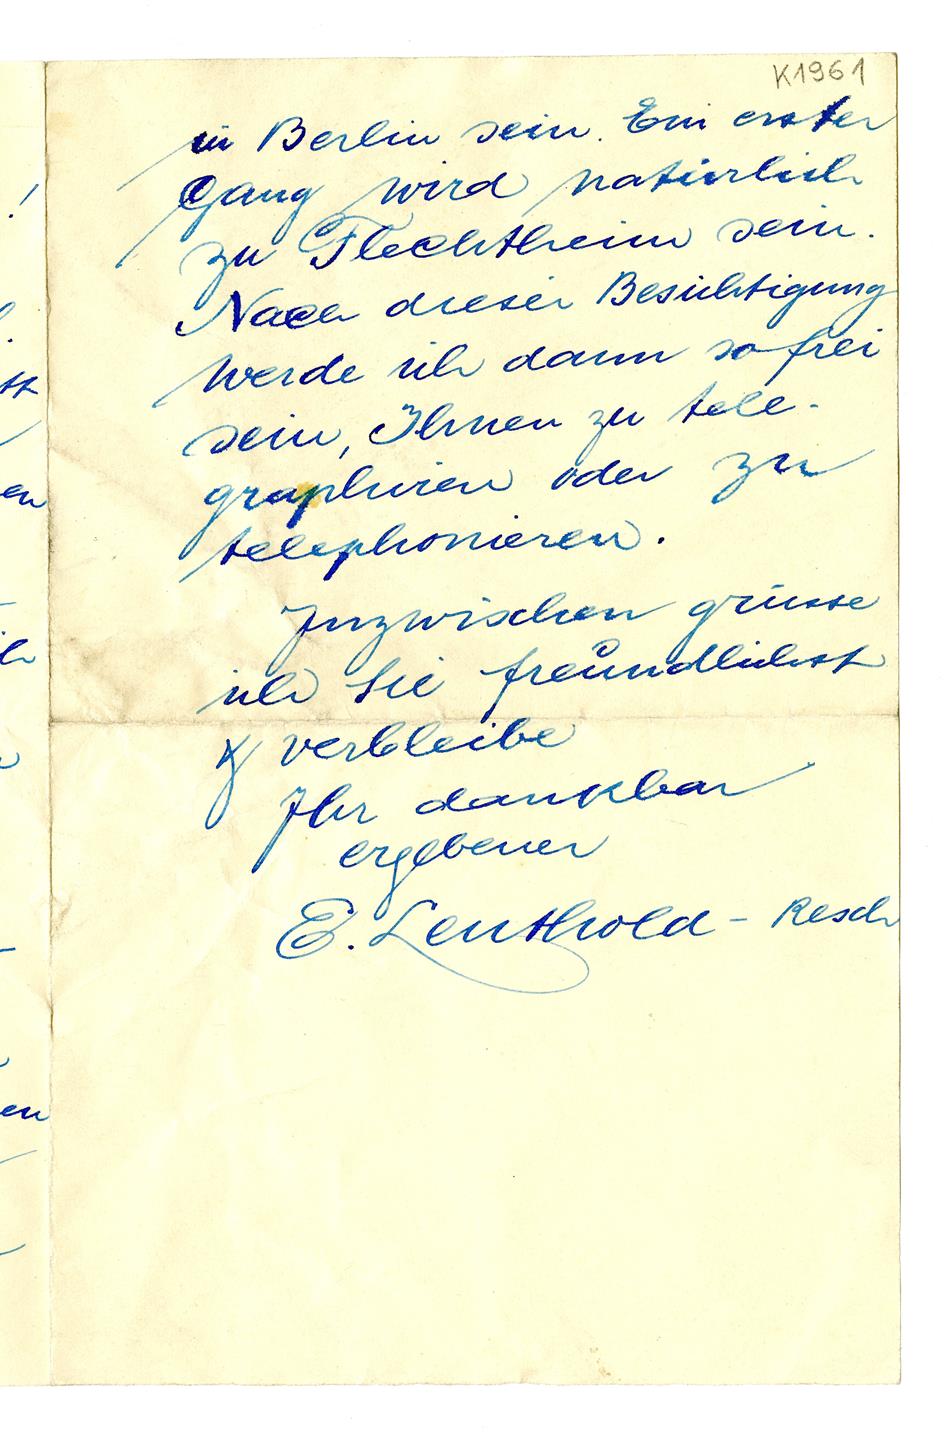 K1961
in Berlin sein. Ein erster
Gang wird natürlich
zu Flechtheim sein.
Nach dieser Besichtigung
werde ich dann so frei
sein, Ihnen zu tele-
graphiren oder zu
telephonieren.
Inzwischen grüsse
ich Sie freundlichst
& verbleibe
Ihr dankbar
ergebener
E. Leuthold - Resch
en
en